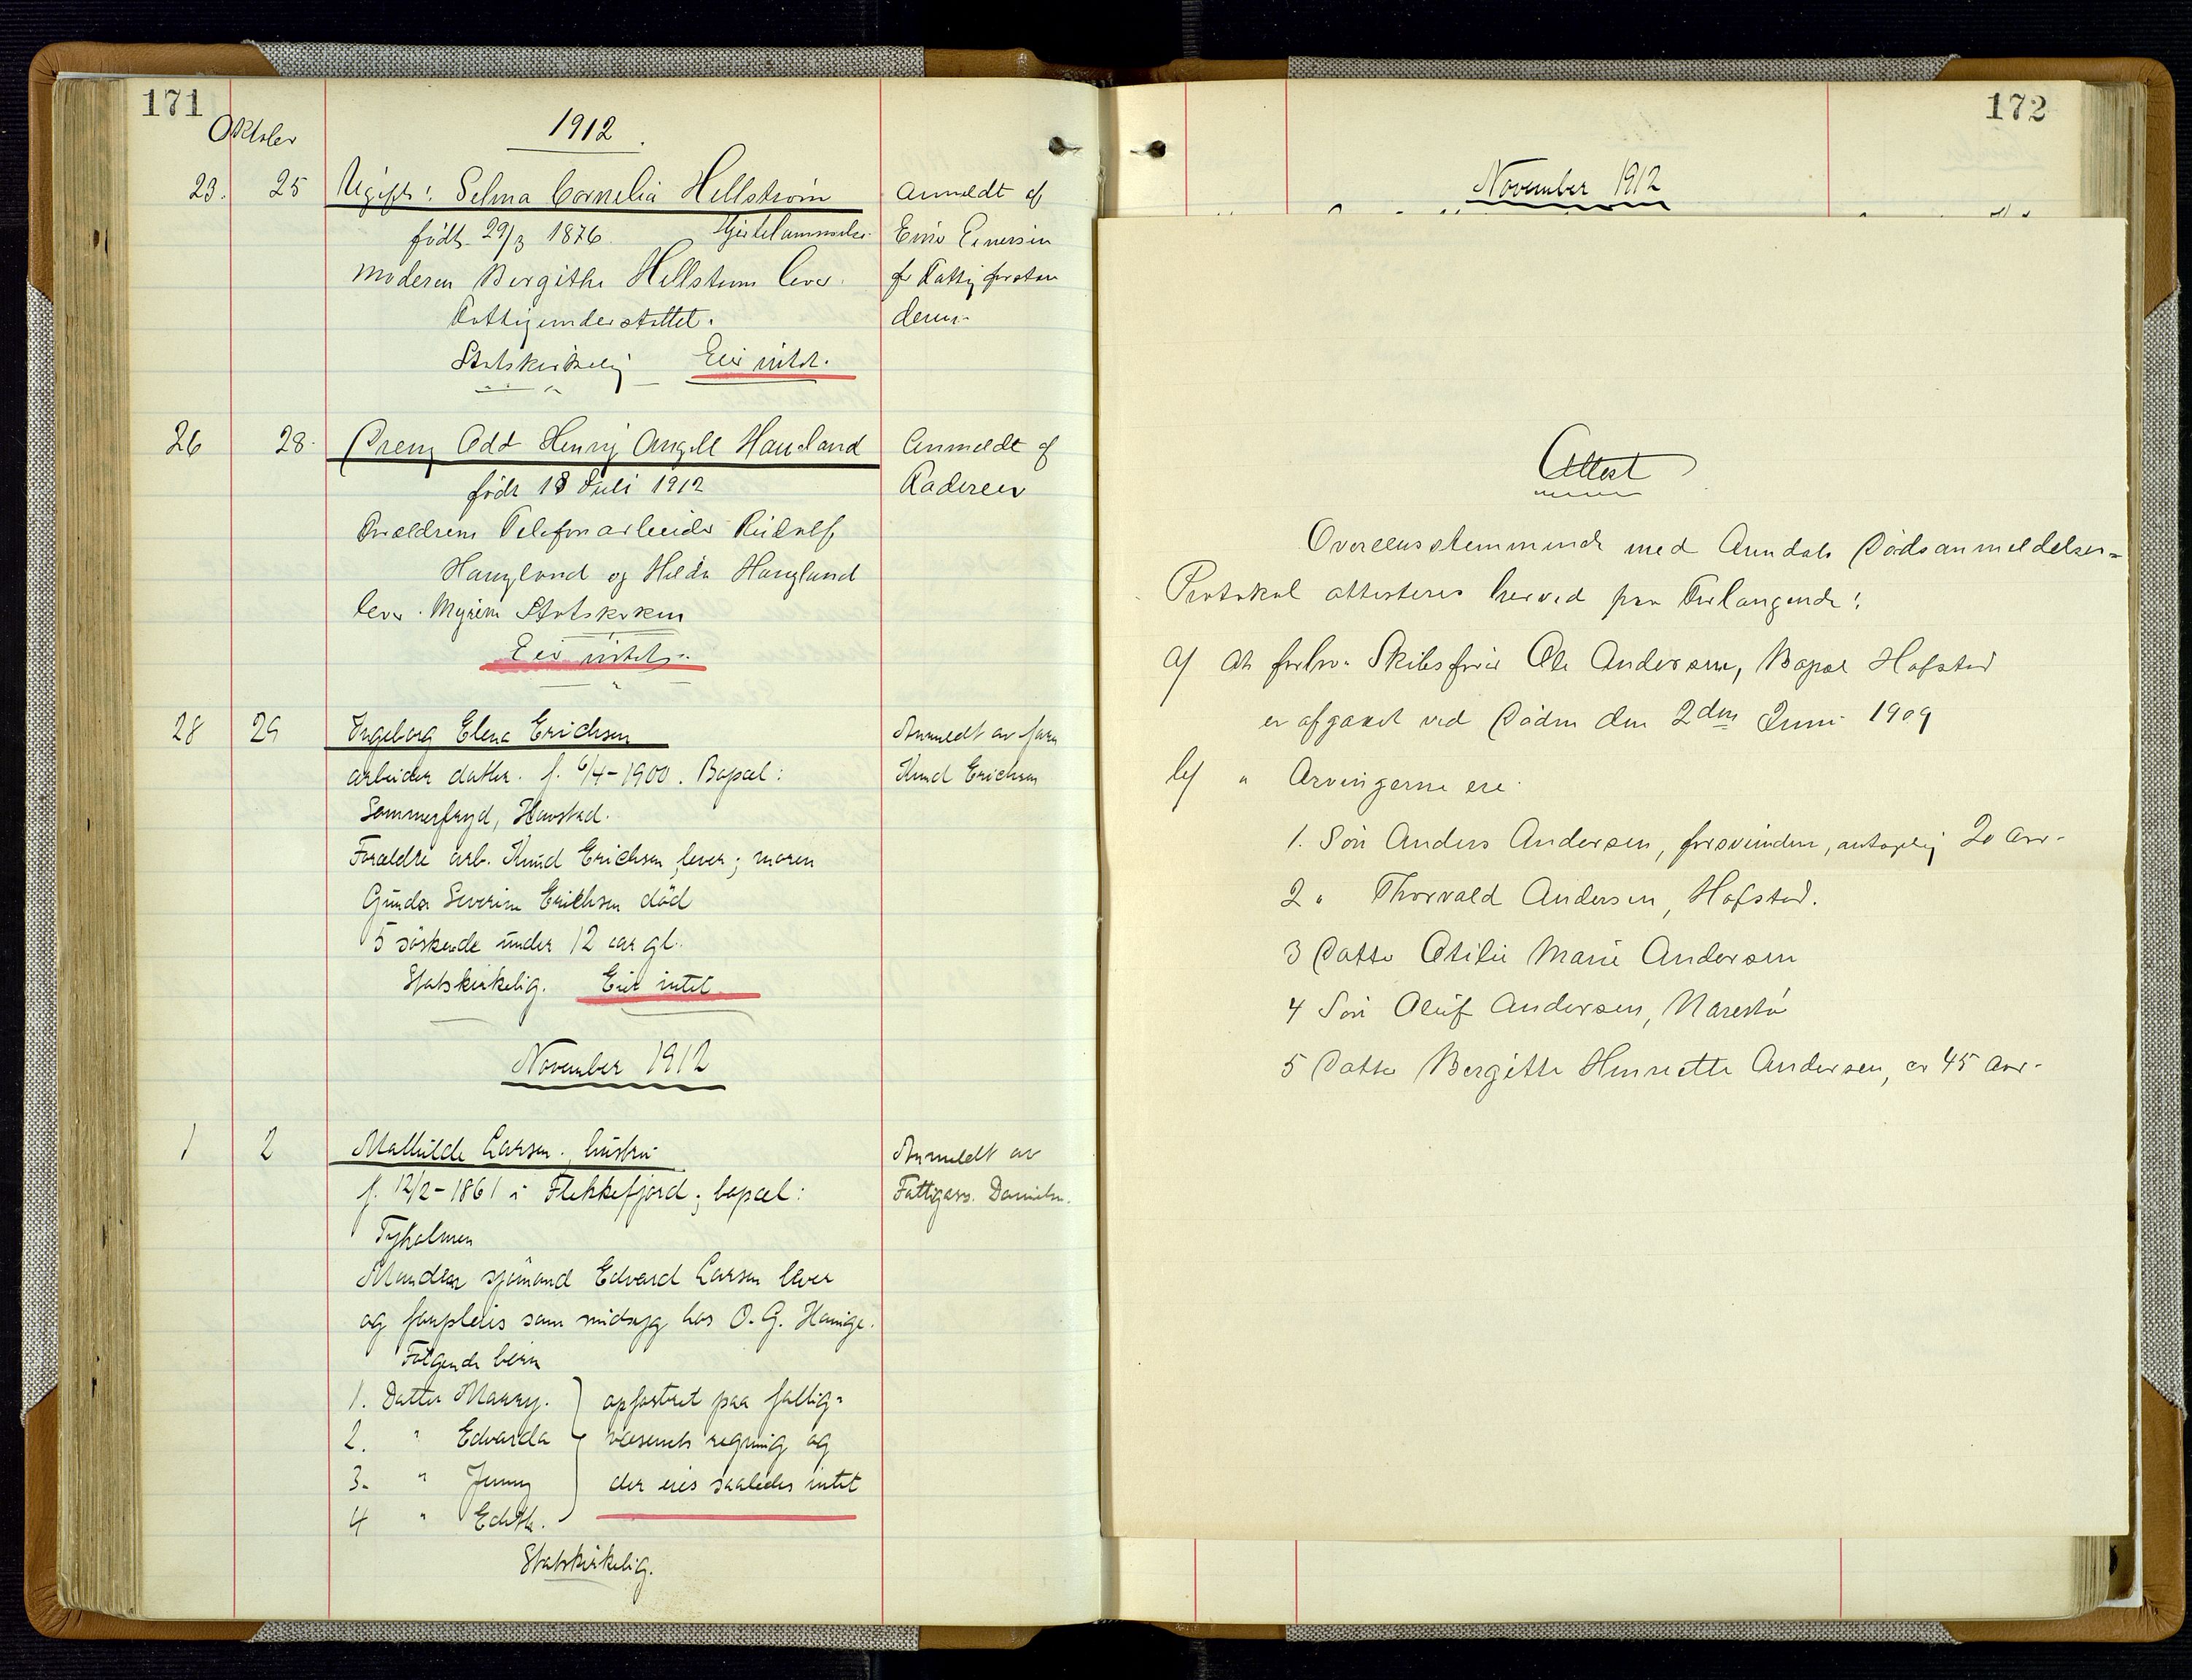 171
Oktober
1912
23. 25 Ugift: Selma Cornelia Hellstrøm
født 29/3 1876. Hjertelammelse
Moderen Bergithe Hellstrøm lever.
Fattigunderstøttet.
Statskirkelig Eier intet.
Anmeldt af
Einer Einersen
for Fattigforstan
deren
26 28. Dreng Odd Henry Angell Haugland
født 18 Juli 1912
Forældrene Telefonarbeider Rudolf
Haugland og Hilda Haugland
lever. Myren Statskirken
Eier intet.
Anmeldt af
Faderen
28 29 Ingeborg Elene Erichsen
arbeider datter. f. 6/4-1900. Bopæl:
Sommerfryd, Havstad.
Forældre arb. Knud Erichsen, lever; moren
Gunda Severine Erichsen död
5 söskende under 12 aar gl.
Statskirkelig. Eier intet
Anmeldt av faren
Knud Erichsen
November 1912
1 2 Mathilde Larsen, hustru
f. 12/2-1861 i Flekkefjord; bopæl:
Tyholmen
Manden sjömand Edvard Larsen lever
og forpleies som sindssyg hos O. G.
Følgende børn
1. Datter opfostret paa fattig=
2. " Edvarda væsenets regning og
3. " Jenny der eies saaledes intet
4 " Edith.
Statskirkelig.
Anmeldt av
Fattigforst. Danielsen.
172
November 1912
Attest
Overeensstemmende med Arendals Dødsanmeldelses=
Protokol attesteres herved paa Forlangende:
a/ At forhv. Skibsfører Ole Andersen, Bopæl Hofstad
er afgaaet ved Døden den 2den Juni 1909
b/ " Arvingerne ere
1. Søn Anders Andersen, forsvunden, antagelig 20 Aar.
2 " Thorvald Andersen, Hofstad.
3 Datter Otilie Marie Andersen
4 Søn Oluf Andersen, Narestø
5 Datter Bergitte Henriette Andersen, er 45 Aar.